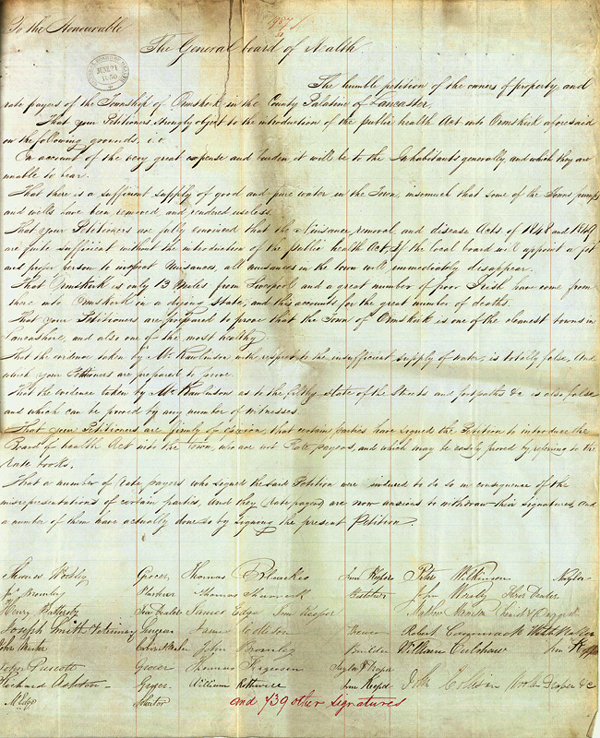 To the Honourable
The General board of Health
The humble petition of the owners of property and
rate payers of the Township of Ormskirk in the County Palatine of Lancaster.
That your Petitioners strongly object to the introduction of the public health Act into Ormskirk aforesaid
on the following grounds. i.e
On account of the very great expense and burden it will be to the Inhabitants generally and which they are
unable to bear.
That there is a sufficient supply of good and pure water in the Town, insomuch that some of the Towns pumps
and wells have been removed, and rendered useless
That your Petitioners are fully convinced that the Nuisance removal, and disease Acts of 1848 and 1849
are quite sufficient without the introduction of the public health Act. If the local board will appoint a fit
and proper person to inspect Nuisances, all nuisances in the town will immediately disappear.
That Ormskirk is only 13 Miles from Liverpool and a great number of poor Irish have come from
there into Ormskirk in a dying state, and this accounts for the great number of deaths.
That your Petitioners are prepared to prove that the Town of Ormskirk is one of the cleanest towns in
Lancashire, and also one of the most healthy
That the evidence taken by Mr Rawlinson with respect to the insufficient supply of water, is totally false, And
which your Petitioners are prepared to prove
That the evidence taken by Mr Rawlinson as to the filthy state of the Streets and footpaths &c is also false
and which can be proved by any number of witnesses
That your Petitioners are firmly of opinion that certain parties have signed the Petition to introduce the
Board of health Act into the Town, who are not Rate payers, and which may be easily proved by referring to the
Rate books.
That a number of Rate payers who signed the said Petition were induced to do so in consequence of the
misrepresentations of certain parties, and they (rate payers) are now anxious to withdraw their signatures, and
a number of them have actually done so by signing the present Petition.
Grocer Thomas Inn Keeper Peter Wilkinson
Plumber Thomas John Dealer
Henry James Edge Inn Keeper
Joseph Smith Veterinary Surgeon James Robert
John Builder William Culshaw
John Grocer Thomas
Richard Ashton Grocer William Rothwell Inn Keeper Draper &c
and 139 other signatures